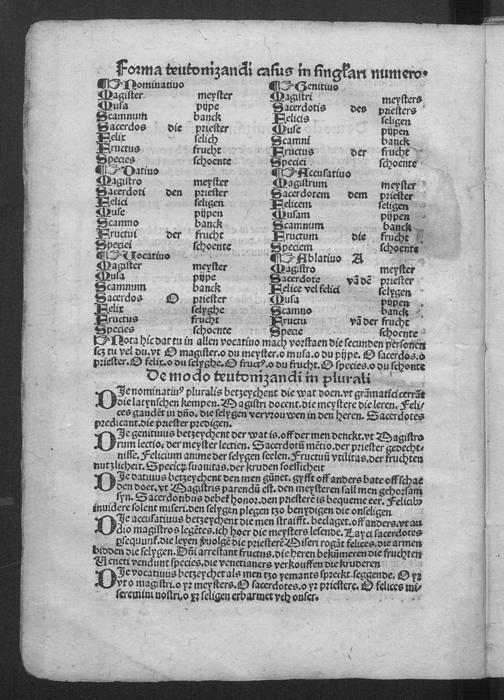 Forma teutonizandi casus in singľari numero.
Nominativo
Magister meyster
Musa pijpe
Scamnum banck
Sacerdos die priester
Felix selich
Fructus frucht
Species schoente
Dativo
Magistro meyster
Sacerdoti den priester
Felici seligen
Muse pijpen
Scamno banck
Fructui der frucht
Speciei schoente
Vocativo
Magister meyster
Musa pijpe
Scamnum banck
Sacerdos O priester
Felix selyghe
Fructus frucht
Species schoente
Genitivo
Magistri meysters
Sacerdotis des priesters
Felicis seligen
Muse pijpen
Scamni banck
Fructus der frucht
Speciei schoente
Accusativo
Magistrum meyster
Sacerdotem dem priester
Felicem seligen
Musam pijpen
Scamnum banck
Fructum die frucht
Speciem schoente
Ablativo A
Magistro meyster
Sacerdote vā dē priester
Felice vel felici selygen
Musa pijpen
Scamno banck
Fructu vā der frucht
Specie schoente
Nota hic dat tu in allen vocativo mach vorstaen die secunden personen
scz tu vel du. vt O magister. o du meyster. o musa. o du pijpe. O sacerdos. o
priester. O felix. o du selyghe. O fruct⁹. o du frucht. O species. o du schonte
De modo teutonizandi in plurali
DJe nominatiu⁹ pluralis betzeychent die wat doen. vt grāmatici cerrāt
die latynschen kempen. Magistri docent. die meystere die leren. Feli/
ces gaudēt in dño. die selygen vervrouwen in den heren. Sacerdotes
predicant. die priester predigen.
DJe genitiuus betzeychent der wat is. off der men denckt. vt Magistro
rum lectio. der meyster lectien. Sacerdotū mētio. der priester gedecht/
nisse. Felicium anime der selygen seelen. Fructuū vtilitas. der fruchten
nutzlicheit. Specieꝝ suauitas. der kruden soessicheit
DJe datiuus betzeychent den men günet. gyfft off anders bate off scha/
den doet. vt Magistris parendū est. den meysteren sall men gehorsam
syn. Sacerdotibus debet honor. den priesterē is bequeme eer. Felicib⁹
invidere solent miseri. den selygen plegen tzo benydigen die onseligen
DJe accusatiuus betzeychent die men straifft. beclaget. off anders. vt au
dio magistros legētes. ich hoer die meysters lesende. Layci sacerdotes
ꝓsequunt̄. die leyen ꝟvolgē die priesterē Miseri rogāt felices. die armen
bidden die selygen. Dñi arrestant fructus. die heren bekümeren die fruchten
Veneti vendunt species. die venetianers verkouffen die kruderen
DJe vocatiuus betzeychēt als men tzo yemants spreckt seggende. O yr
vt o magistri. o yr meysters. O sacerdotes. o yr priestere. O felices mi/
seremini nostri. o yr seligen erbarmet vch onser.